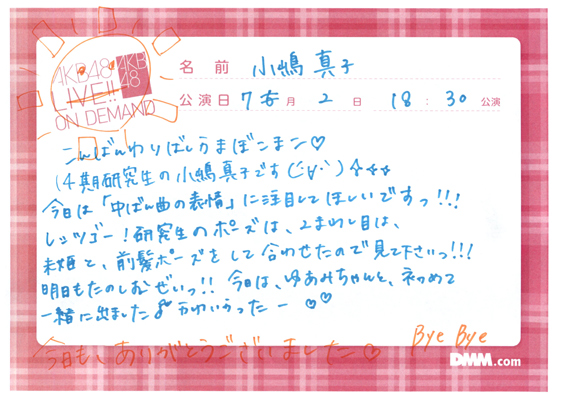 AKB48
LIVE!!
ON DEMAND
AKB
48
名前 小嶋真子
公演日 7月 2日 18:30公演
こんばんわりばしうまぼこまこ♡
14期研究生の小嶋真子です
今日は「中ばん曲の表情」に注目してほしいですっ!!!
レッツゴー!研究生のポーズは、2まわし目は、
未姫と、前髪ポーズをして合わせたので見て下さいっ!!!
明日もたのしむぜいっ!! 今日は、ゆあみちゃんと、初めて
一緒に出ました かわいかったー♡♡
今日も、ありがとうございましたー♡
Bye Bye
DMM.com